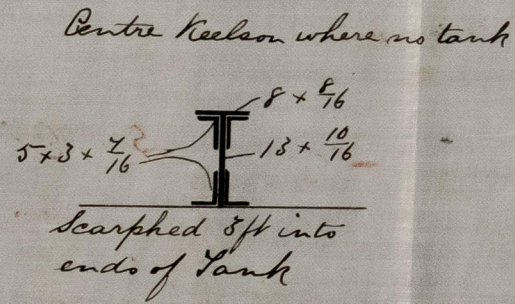 Centre Keelson where no tank
8 x 8/16
5 x 3 x 7/16
13 x 10/16
Scarphed 3ft into
ends of Tank